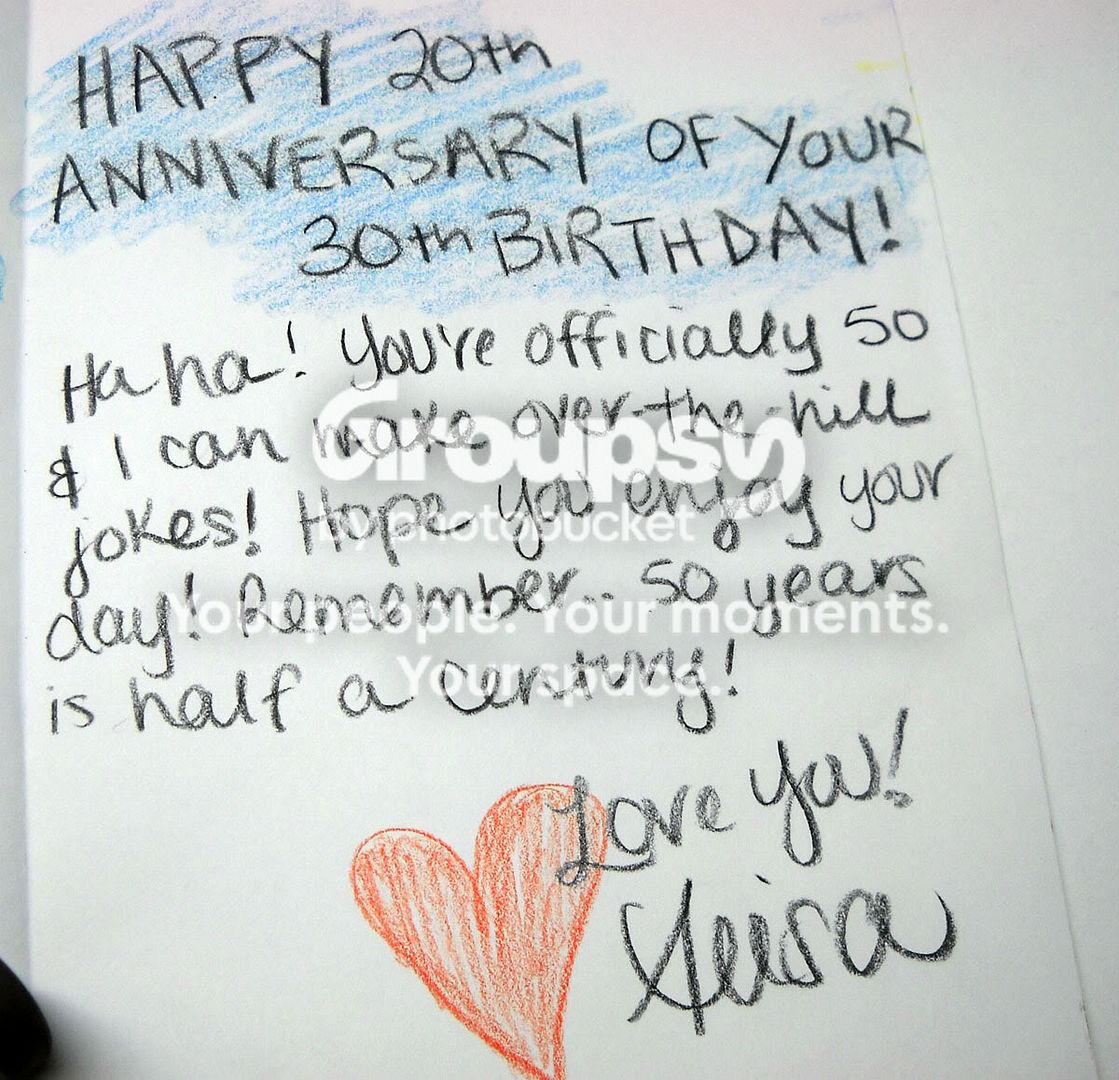 HAPPY 20th
ANNIVERSARY OF YOUR
30th BIRTHDAY!
Ha ha! You're officially 50
& I can make over-the-hill
jokes! Hope you enjoy your
day! Remember.. 50 years
is half a century!
Love You!
Groupsy
by photobucket
Your people. Your moments.
Your space.